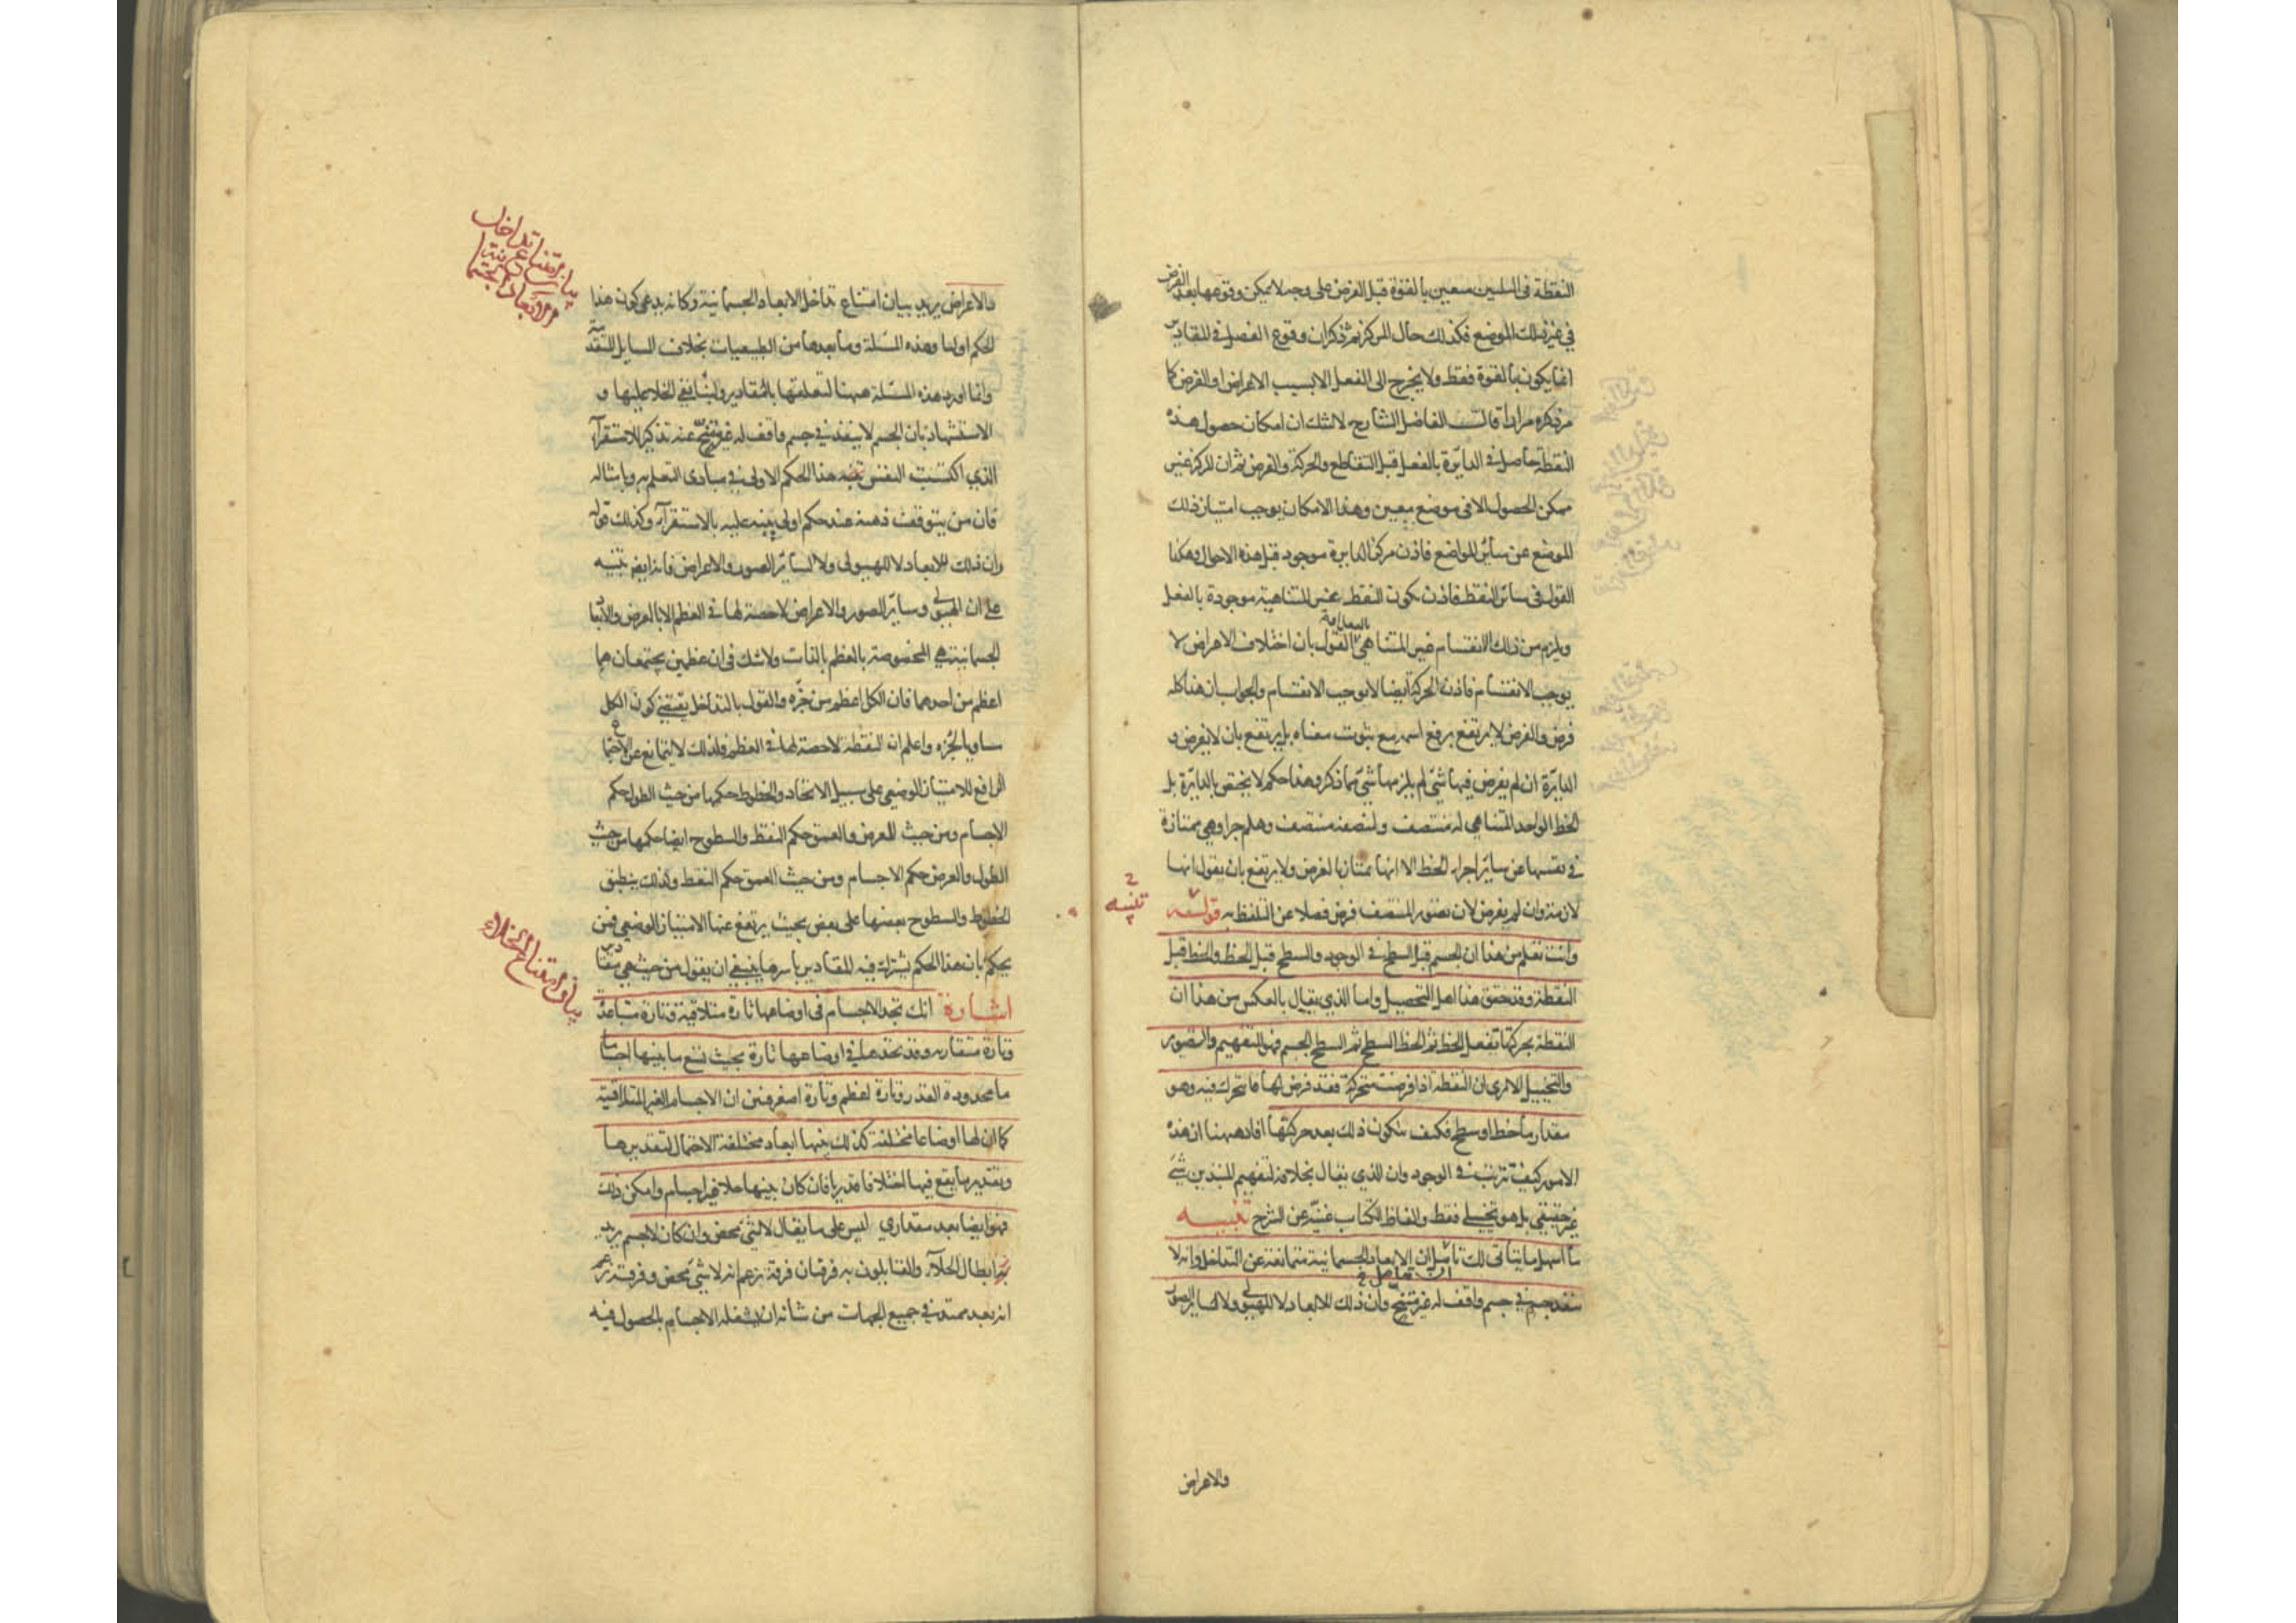 النقطة فى الثلثين متعين بالقوة قبل الفرض على وجه لا يمكن وقوعها بعد الفرض
فى غير ذلك الموضع فكذلك حال المركز ثم ذكر ان وقوع الفصل فى المقادير
انما يكون بالقوة فقط ولا يخرج الى الفعل الا بسبب الاعراض او الفرض كما
مر ذكره مرارا قالـــ الفاضل الشارح لا شك ان امكان حصول هذه
النقطة حاصل فى الدايرة بالفعل قبل التقاطع والحركة والفرض ثم ان المركز غير
ممكن الحصول الا فى موضع معين وهذا الامكان يوجب امتياز ذلك
الموضع عن سائر المواضع فاذن مركز الدايرة موجود قبل هذه الاحوال وهكذا
القول فى سائر النقط فاذن يكون النقط غير المتناهية موجودة بالفعل
ويلزم من ذلك الانقسام غير المتناهى القول بان اختلاف الاعراض لا
يوجب الانقسام فاذن الحركة ايضا لا يوجب الانقسام والجواب ان هذا كله
فرض والفرض لا يرتفع برفع اسمه مع ثبوت معناه بل يرتفع بان لا يفرض و
الدايرة ان لم يفرض فيها شئ لم يلزمها شئ مما ذكر وهذا حكم لا يختص بالدايرة بل
الخط الواحد المتناهى له منتصف ولنصفه منتصف وهلم جرا وهى ممتازة
فى نفسها عن ساير اجزاء الخط الا انها ممتاز بالفرض ولا يرتفع بان يقول انها
لازمة وان لم يفرض لان تصور المنتصف فرض فضلا عن التلفظ به قولـــه
تنبيه
وانت تعلم من هذا ان الجسم قبل السطح فى الوجود والسطح قبل الخط والخط قبل
النقطة وقد حقق هذا اهل التحصيل واما الذى يقال بالعكس من هذا ان
النقطة بحركتها تفعل الخط ثم الخط السطح ثم السطح الجسم فهو للتفهيم والتصوير
والتخييل الا ترى ان النقطة اذا فرضت متحركة فقد فرض لها ما تتحرك فيه وهو
مقدار ما خط او سطح فكيف يتكون ذلك بعد حركتها افاد ههنا ان هذه
الامور كيف تترتب فى الوجود وان الذى يقال بخلافه لتفهيم المبتدين شئ
غير حقيقى بل هو تخييلى فقط والفاظ الكتاب غنية عن الشرح تنبيـــه
ما اسهل ما يتأتى لك تأمل ان الابعاد الجسمانية متمانعة عن التداخل وانه لا
ينفذ جسم فى جسم واقف له غير متنح وان ذلك للابعاد لا للهيولى ولا لساير الصور
والاعراض
والاعراض يريد بيان امتناع تداخل الابعاد الجسمانية وكانه يدعى كون هذا
الحكم اوليا وهذه المسئلة وما بعدها من الطبيعيات بخلاف المسايل المتقدمة
وانما اورد هذه المسئلة ههنا لتعلقها بالمقادير ولبناء نفى الخلاء عليها و
الاستشهاد بان الجسم لا ينفذ فى جسم واقف له غير متنح عنه تذكير للاستقراء
الذى اكتسبت النفس هذا الحكم الاولى فى مبادى التعلم به وبامثاله
فان من يتوقف ذهنه عند حكم اولى ينبه عليه بالاستقراء وكذلك قوله
وان ذلك للابعاد لا للهيولى ولا لسائر الصور والاعراض فانه ايضا تنبيه
على ان الهيولى وساير الصور والاعراض لا حصة لها فى العظم الا بالعرض والابعاد
الجسمانية هى المخصوصة بالعظم بالذات ولا شك فى ان عظمين يجتمعان هما
اعظم من احدهما فان الكل اعظم من جزئه والقول بالتداخل يقتضى كون الكل
مساويا لجزئه واعلم ان النقطة لا حصة لها فى العظم فلذلك لا يتمانع عن الاجتماع
الرافع للامتياز الوضعى على سبيل الاتحاد والخطوط حكمها من حيث الطول حكم
الاجسام ومن حيث العرض والعمق حكم النقط والسطوح ايضا حكمها من حيث
الطول والعرض حكم الاجسام ومن حيث العمق حكم النقط ولذلك ينطبق
الخطوط والسطوح بعضها على بعض بحيث يرتفع عنها الامتياز الوضعى فمن
يحكم بان هذا الحكم يشترك فيه المقادير باسرها ينبغى ان يقول من حيث هى مقادير
اشارة انك تجد الاجسام فى اوضاعها تارة متلاقية وتارة متباعدة
وتارة متقاربة وقد تجدها فى اوضاعها تارة بحيث تسع ما بينها اجساما
ما محدودة القدر وتارة اعظم وتارة اصغر فتبين ان الاجسام الغير المتلاقية
كما ان لها اوضاعا مختلفة كذلك بينها ابعاد مختلفة الاحتمال لتقديرها
وتقدير ما يقع فيها اختلافا قدريا فان كان بينها خلاء غير اجسام وامكن ذلك
فهو ايضا بعد مقدارى ليس على ما يقال لا شئ محض وان كان لا جسم يريد
ابطال الخلاء والقايلون به فرقتان فرقة تزعم انه لا شئ محض وفرقة تزعم
انه بعد ممتد فى جميع الجهات من شانه ان يشغله الاجسام بالحصول فيه
بيان امتناع الخلاء